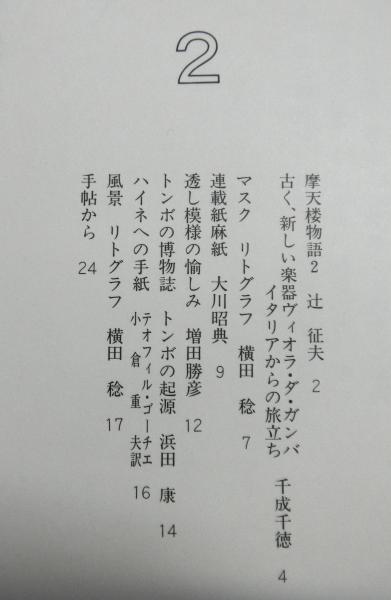 2
摩天楼物語2 辻 征夫 2
古く、新しい楽器ヴィオラ・ダ・ガンバ
イタリアからの旅立ち 千成千徳 4
マスク リトグラフ 横田 稔 7
連載紙麻紙 大川昭典 9
透し模様の愉しみ 増田勝彦 12
トンボの博物誌 トンボの起源 浜田 康 14
ハイネへの手紙 テオフィル・ゴーチェ
小倉重夫訳 16
風景 リトグラフ 横田 稔 17
手帖から 24